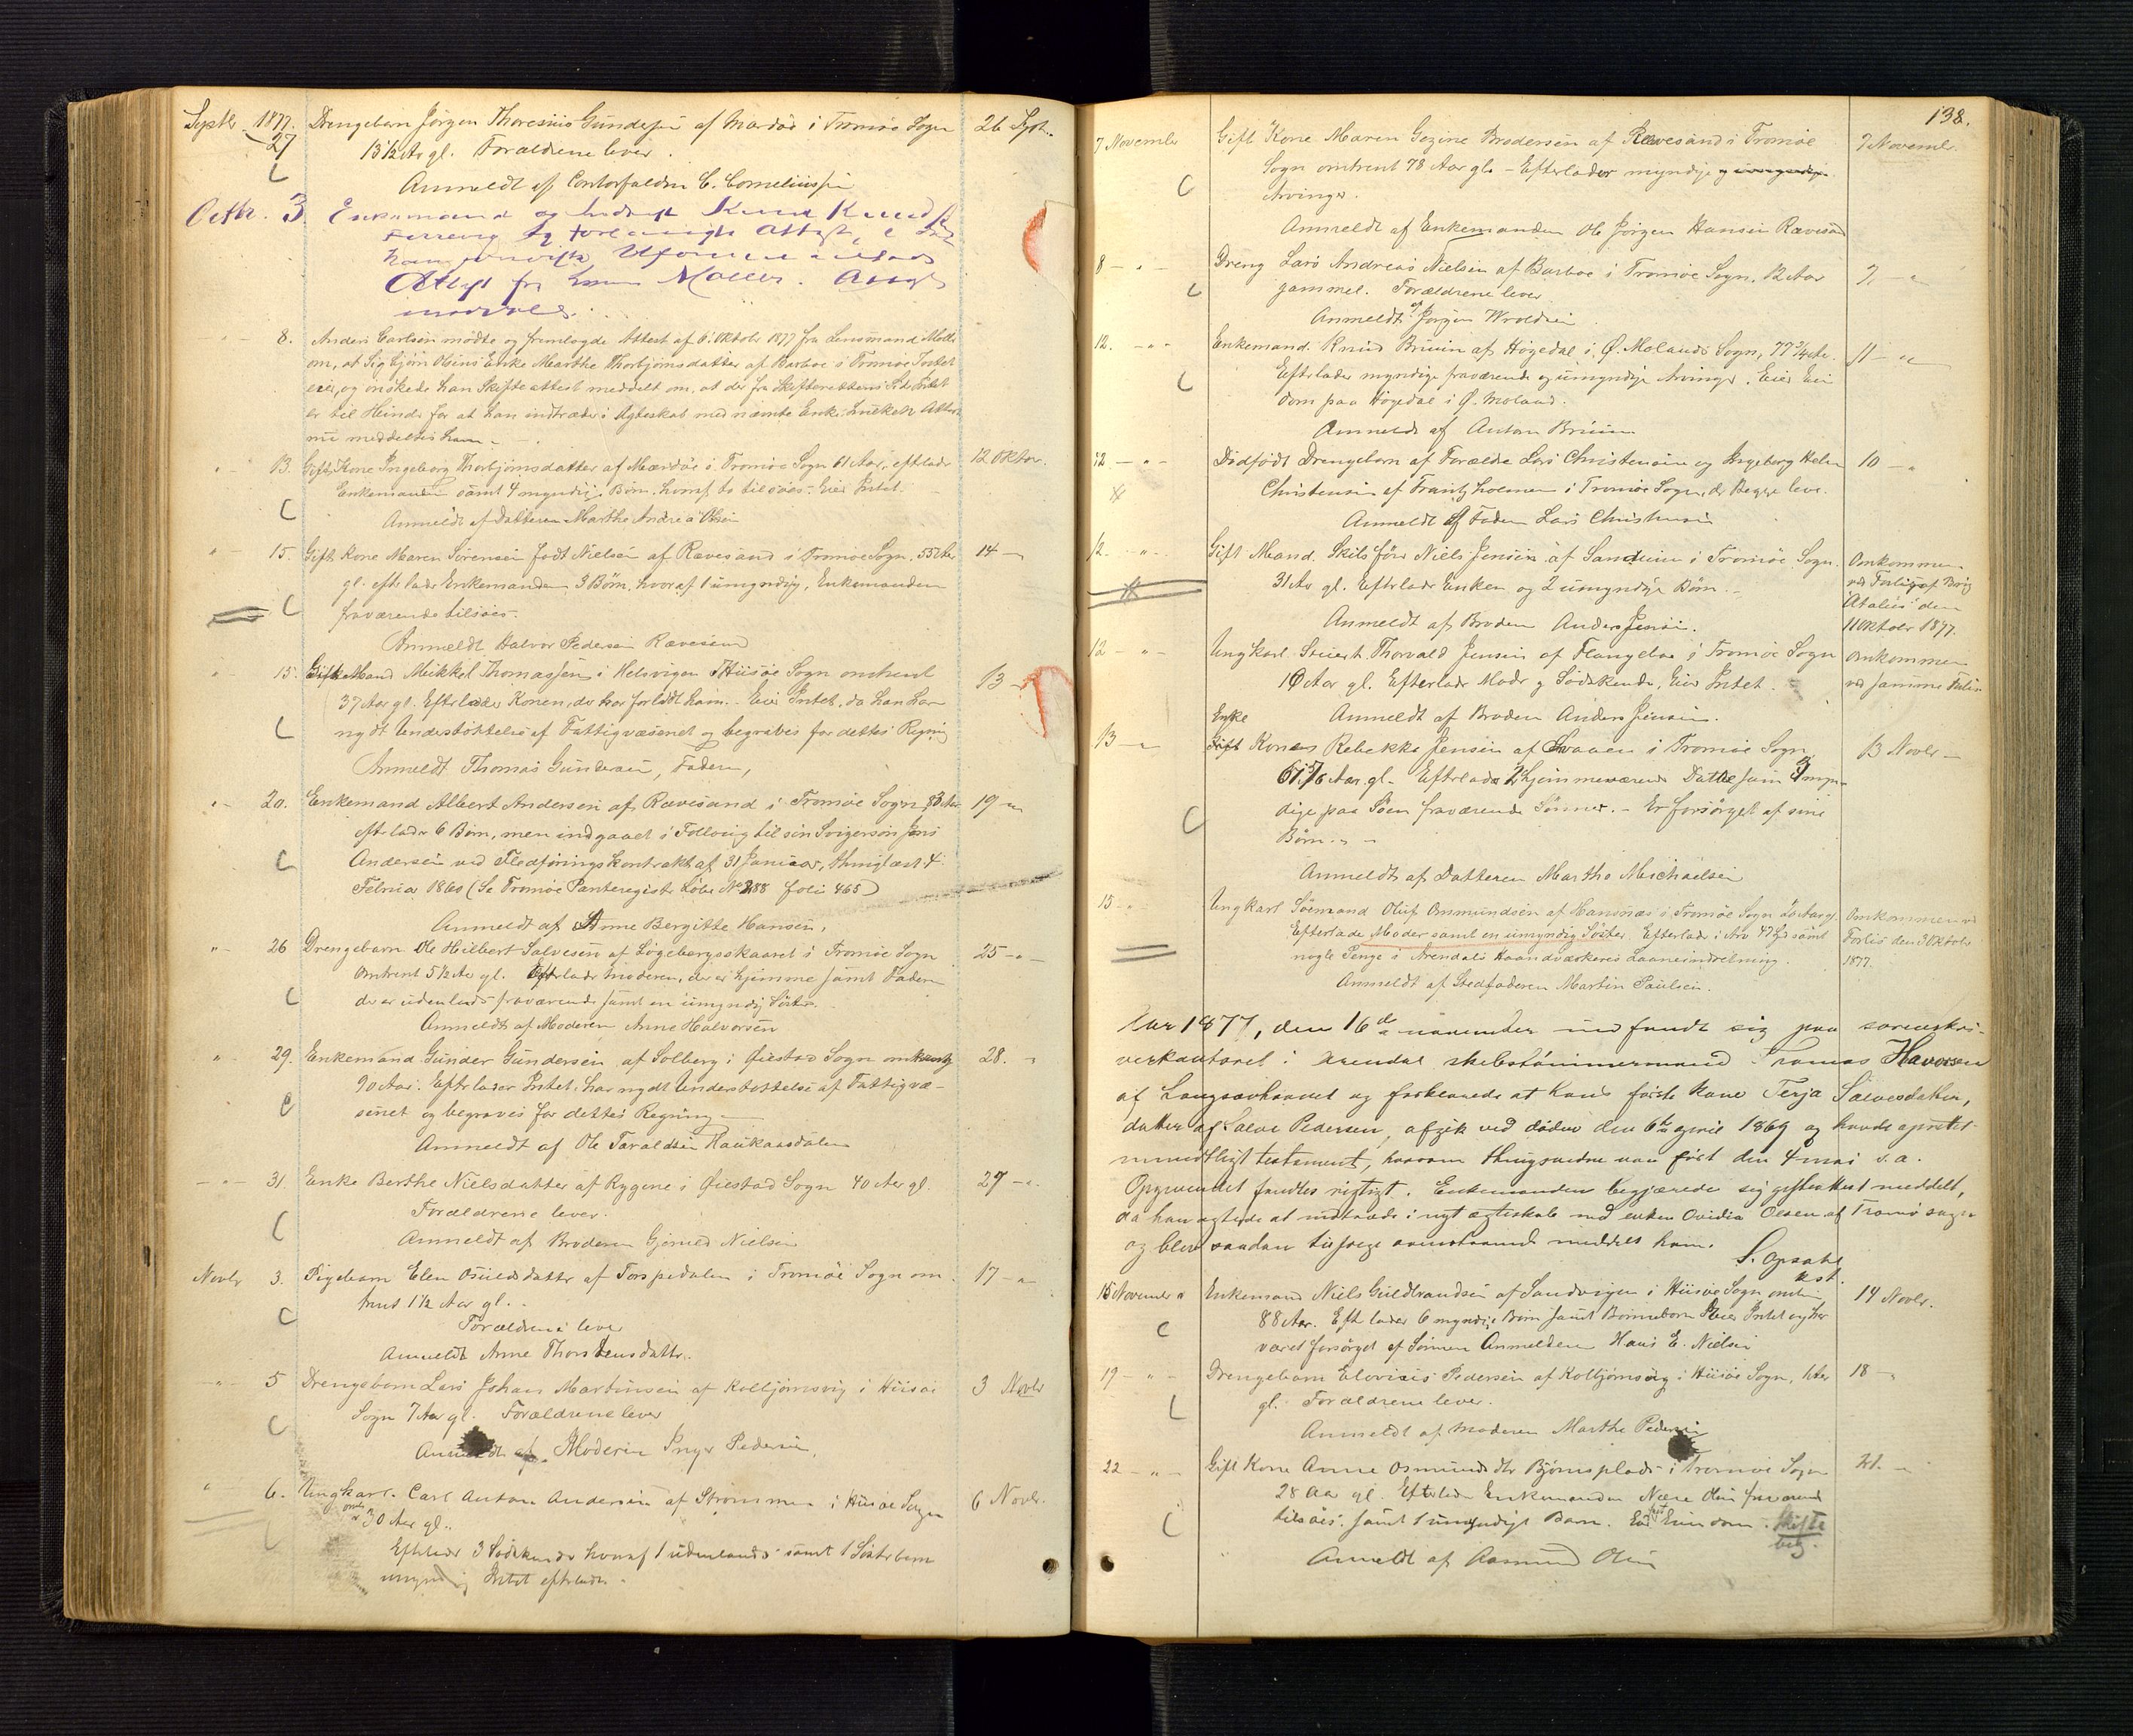 Septbr 1877. 27 Drengebarn Jörgen Thoresius Gundersen af Mærdö i Tromöe Sogn 26 Sept.
13½ Aar gl. Forældrene lever.
C
Anmeldt af Contorfuldm. C. Corneliussen
Octbr. 3. Enkemand og Knud Knuds
forlangte Attest,
Attest fra Lensm. Møller. Attest
meddelt.
8. Anders Carlsen mødte og fremlagde Attest af 6 Oktobr 1877 fra Lensmand Møller
om, at Sigbjørn Olsens Enke Marthe Thorbjørnsdatter af Barboe i Tromøe Intet
eier, og ønskede han Skifteattest meddelt om, at der fra Skifterettens Side Intet
er til Hinder for at han indtræder i Ægteskab med nævnte Enke. Saadan Attest
meddeltes ham.
13. Gift Kone Ingeborg Thorbjørnsdatter af Mærdöe i Tromöe Sogn 61 Aar, efterlader 12 Oktbr.
Enkemanden samt 4 myndige Børn, hvoraf to tilsöes. Eier Intet
C
Anmeldt af Datteren Marthe Andrea Olsen
15. Gift Kone Maren Sørensen født Nielsen af Rævesand i Tromøe Sogn, 55 Aar 14 —
gl. efterlader Enkemanden 3 Børn, hvoraf 1 umyndig, Enkemanden
C
fraværende tilsöes.
Anmeldt Halvor Pedersen Rævesand
15. Gift Mand Mikkel Thomassen i Helsvigen Hiisöe Sogn omtrent 13 —
37 Aar gl. Efterlader Konen, der har forladt ham. Eier Intet, da han har
C
nydt Understöttelse af Fattigvæsenet og begraves for dettes Regning
Anmeldt Thomas Gundersen, Faderen,
20. Enkemand Albert Andersen af Rævesand i Tromöe Sogn, 83 Aar 19 —
efterlader 6 Børn, men indgaaet i Follaug til sin Svigersøn Jens
C
Andersen ved Fledføringskontrakt af 31 Januar, thinglæst 4
Februar 1860 (Se Tromöe Panteregister Löbe No 288 folio 465)
Anmeldt af Anne Bergitte Hansen,
26 Drengebarn Ole Hilbert Salvesen af Løgebergsskaaret i Tromøe Sogn 25 —
omtrent 5½ Aar gl. Efterlader Moderen, der er hjemme samt Faderen
C
der er udenlands fraværende samt en umyndig Søster.
Anmeldt af Moderen Anne Halvorsen
29. Enkemand Gunder Gundersen af Solberg i Øiestad Sogn omtrent 28. —
90 Aar. Efterlader Intet, har nydt Understøttelse af Fattigvæ-
C
senet og begraves for dettes Regning
Anmeldt af Ole Taraldsen Haukaasdalen
31. Enke Berthe Nielsdatter af Rygene i Øiestad Sogn 40 Aar gl. 27 —
Forældrene lever.
C
Anmeldt af Broderen Gjerued Nielsen
Novbr 3. Pigebarn Elen Osuldsdatter af Torspedalen i Tromöe Sogn om 17 —
trent 1½ Aar gl.
C
Forældrene lever
Anmeldt Anne Thorstensdatter.
5 Drengebarn Lars Johan Martinsen af Kolbjørnsvig i Hiisöe 3 Novbr
Sogn 7 Aar gl. Forældrene lever
C
Anmeldt af Moderen Inger Pedersen.
6. Ungkarl Carl Anton Andersen af Strømmen i Hiisøe Sogn 6 Novbr.
omtr 30 Aar gl.
Efterlader 3 Sødskende hvoraf 1 udenlands samt 1 Søsterbarn
umyndig Intet efterlader.
138.
7 November Gift Kone Maren Gezine Brodersen af Rævesand i Tromöe 7 Novembr.
Sogn omtrent 78 Aar gl. – Efterlader myndige og umyndige
C
Arvinger.
Anmeldt af Enkemanden Ole Jörgen Hansen Rævesand
8 — Dreng Lars Andreas Nielsen af Barboe i Tromøe Sogn, 12 Aar 7 —
C
gammel. Forældrene lever
Anmeldt af Jørgen Wroldsen
12. — Enkemand Knud Bruun af Høgedal i Ø. Molands Sogn, 77¾ Aar. 11 —
Efterlader myndige fraværende og umyndige Arvinger. Eier Eien
C
dom paa Høgedal i Ø. Moland.
Anmeldt af Anton Bruun
12 — Dødfødt Drengebarn af Forældre Lars Christensen og Ingeborg Helene 10 —
Christensen af Frantzholmen i Tromöe Sogn, der Begge lever.
Anmeldt af Faderen Lars Christensen
12. — Gift Mand Skibsfører Niels Jensen af Sandum i Tromöe Sogn. Omkommen
31 Aar gl. Efterlader Enken og 2 umyndige Børn. ved Forliis af Brig
"Atalia" den
Anmeldt af Broderen Anders Jensen. 11 Oktobr 1877.
12 — Ungkarl Stuert Thorvald Jensen af Flangeboe i Tromöe Sogn Omkommen
19 Aar gl. Efterlader Moder og Sødskende, Eier Intet. ved samme Forlis
Anmeldt af Broderen Anders Jensen.
13 — Enke Gift Konen Rebekka Jensen af Svaaen i Tromöe Sogn 13 Novbr —
61 5/6 Aar gl. Efterlader 2 hjemmeværende Døttre samt 3 myn
C
dige paa Søen fraværende Sønner. – Er forsørget af sine
Børn. –
Anmeldt af Datteren Marthe Michaelsen
15 — Ungkarl Sømand Oluf Ommundsen af Hansnæs i Tromøe Sogn 20 Aar gl. Omkommen ved
Efterlader Moder samt en umyndig Søster. Efterlader i Arv 47 Spd samt Forlis den 3 Oktobr
nogle Penge i Arendals Haandværkeres Laaneindretning. 1877.
Anmeldt af Stedfaderen Martin Paulsen.
Aar 1877, den 16de november indfandt sig paa sorenskri-
verkontoret i Arendal skibstömmermand Tomas Havorsen
af Langsævhavnet og forklarede at hans første kone Terja Salvesdatter,
datter af Salve Pedersen, afgik ved döden den 6te april 1869 og havde oprettet
mundtligt testament, hvorom thingsvidne var ført den 4 mai s. a.
Opgivendet fandtes rigtigt. Enkemanden begjærede sig giftattest meddelt,
da han agtede at indtræde i nyt ægteskab med enken Ovidia Olsen af Tromö sogn
og blev saadan tilføge ovenstaaende meddelt ham.
S. Opsahl
kst.
15 November Enkemand Niels Guldbrandsen af Sandvigen i Hiisöe Sogn omtr. 14 Novbr.
88 Aar. Efterlader 6 myndige Børn samt Børnebørn Eier Intet og har
C
været forsørget af Sønnen Anmelderen Hans E. Nielsen
19 — Drengebarn Elovisis Pedersen af Kolbjørnsvig i Hiisöe Sogn, 1 Aar 18 —
C
gl. Forældrene lever.
Anmeldt af Moderen Marthe Pedersen
22 — Gift Kone Anne Osmundsdtr Bjørnsplads i Tromöe Sogn 21. —
28 Aar gl. Efterlader Enkemanden Olsen fraværende
C
tilsöes. samt 1 umyndigt Barn. Eier Eiendom. Skifte
beg.
Anmeldt af Aasmund Olsen